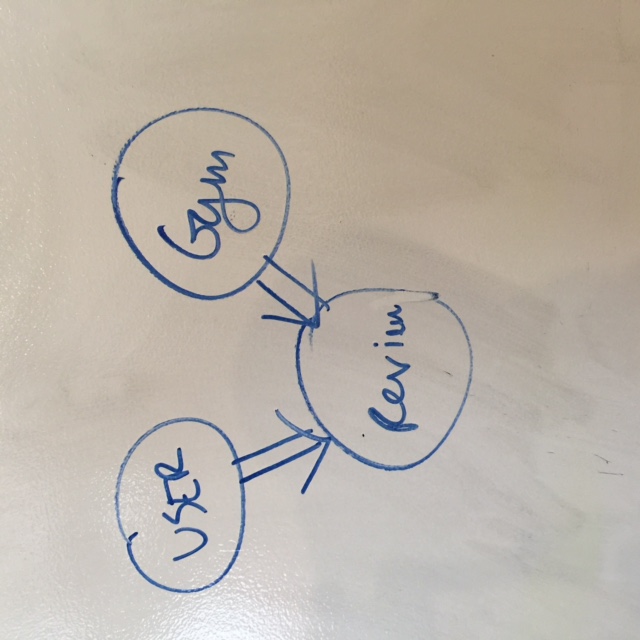 USER
Gym
Review